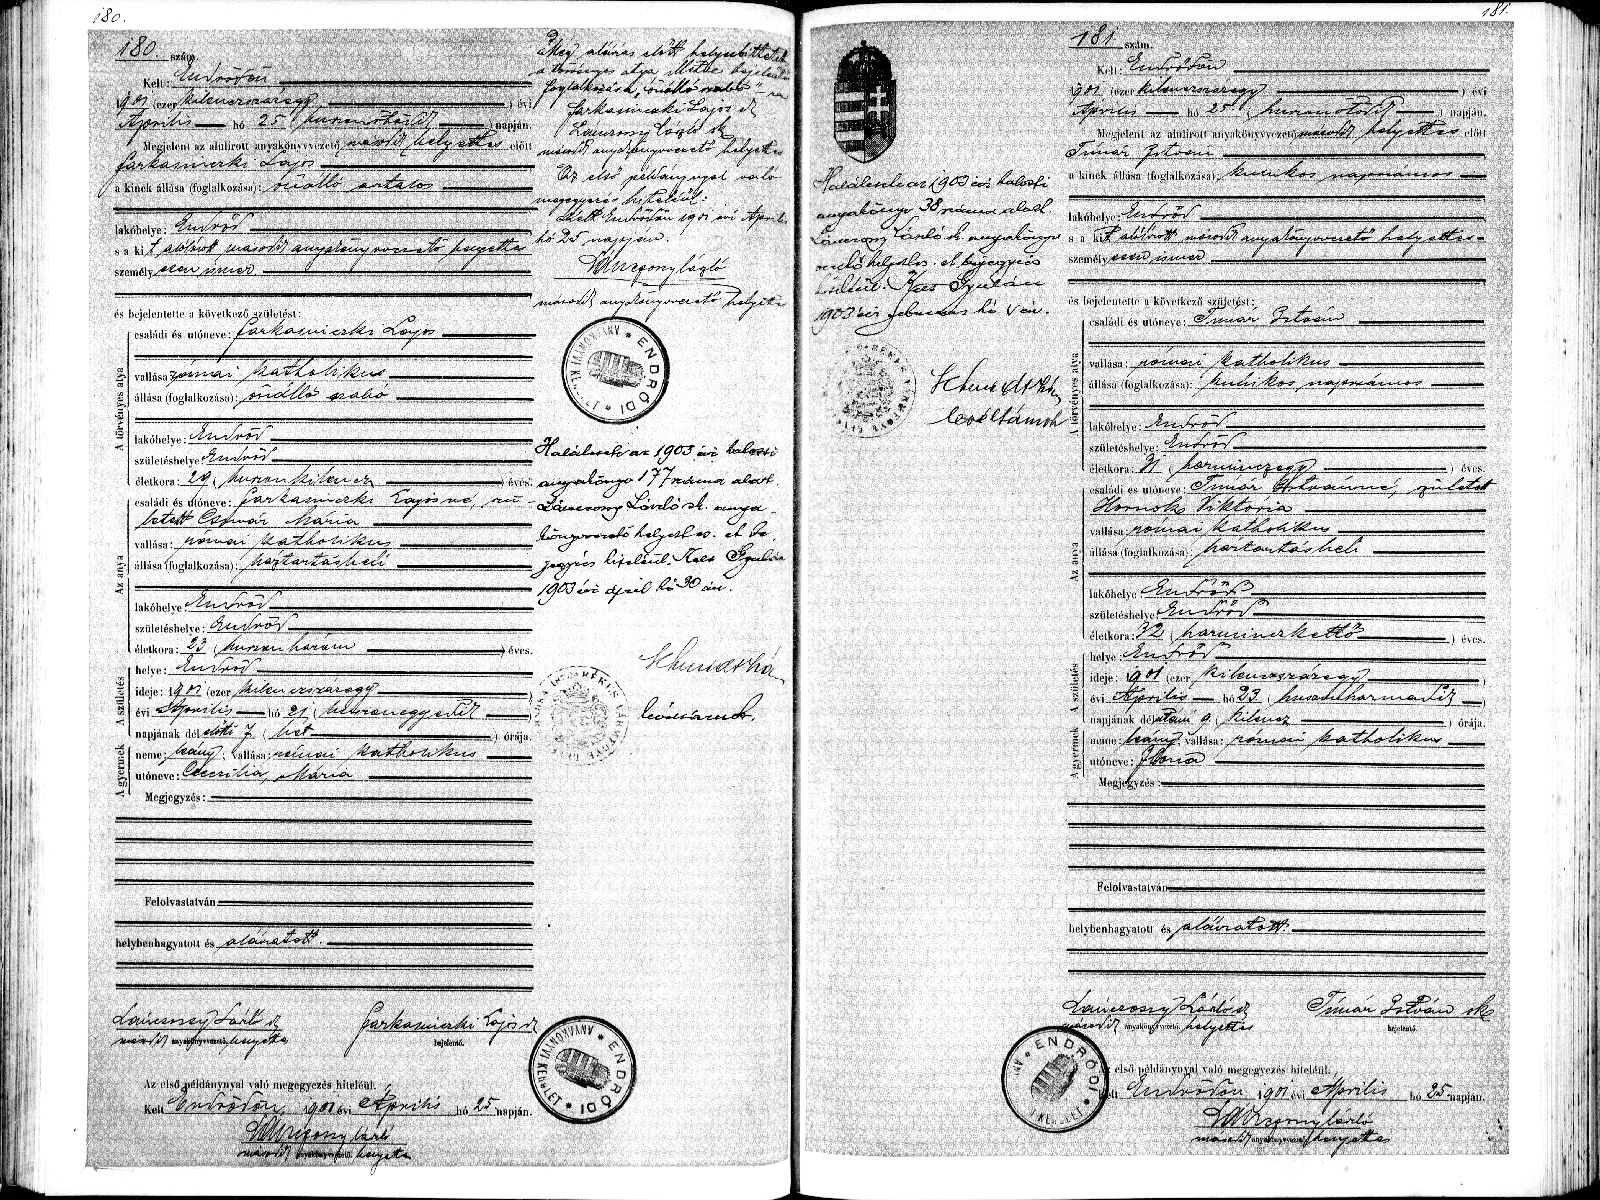 180.
180 szám.
Kelt: Endrődön
1901 (ezer kilenczszázegy) évi
Április hó 25 (huszonötödik) napján.
Megjelent az alulirott anyakönyvvezető másod helyettes előtt
Farkasinszki Lajos
a kinek állása (foglalkozása): önálló
lakóhelye: Endrőd
s a kit alulirott másod anyakönyvvezető helyettes
személyesen ismer
és bejelentette a következő születést:
A törvényes atya
családi és utóneve: Farkasinszki Lajos
vallása: római katholikus
állása (foglalkozása): önálló szabó
lakóhelye: Endrőd
születéshelye: Endrőd
életkora: 29 (huszonkilencz) éves.
Az anya
családi és utóneve: Farkasinszki Lajosné, szü-
letett Csuvár Mária
vallása: római katholikus
állása (foglalkozása): háztartásbeli
lakóhelye: Endrőd
születéshelye: Endrőd
életkora: 23 (huszonhárom) éves.
A születés
helye: Endrőd
ideje: 1901 (ezer kilenczszázegy)
évi Április hó 21 (huszonegyedik)
napjának dél előtti 7 (hét) órája.
A gyermek
neme: leány, vallása: római katholikus
utóneve: Czeczilia, Mária
Megjegyzés:
Felolvastatván
helybenhagyatott és aláíratott.
Lánczsony László sk
másod anyakönyvvezető helyettes
Farkasinszki Lajos sk
bejelentő.
Az első példánynyal való megegyezés hiteléül.
Kelt Endrődön, 1901 évi Április hó 25 napján.
Lánczsony László
másod anyakönyvvezető helyettes
Még aláírás előtt helyesbíttetett
a törvényes atya illetve bejelentő
foglalkozása „önálló szabó"-ra
Farkasinszki Lajos sk
Lánczsony László sk
másod anyakönyvvezető helyettes
Az első példánynyal való
megegyezés hiteléül:
Kelt Endrődön 1901 évi Április
hó 25 napján.
Lánczsony László
másod anyakönyvvezető helyettes
ENDRŐDI
Halálozott az 1903 évi halotti
anyakönyv 177 száma alatt.
Lánczsony László sk. anya-
könyvvezető helyettes. A be-
jegyzés hiteléül. Kelt Gyulán
1903 évi ápril hó 30 án.
levéltárnok.
ENDRŐDI
181.
181 szám.
Kelt: Endrődön
1901 (ezer kilenczszázegy) évi
Április hó 25 (huszonötödik) napján.
Megjelent az alulirott anyakönyvvezető másod helyettes előtt
Timár István
a kinek állása (foglalkozása): kubikos napszámos
lakóhelye: Endrőd
s a kit alulirott másod anyakönyvvezető helyettes
személyesen ismer
és bejelentette a következő születést:
A törvényes atya
családi és utóneve: Timár István
vallása: római katholikus
állása (foglalkozása): kubikos napszámos
lakóhelye: Endrőd
születéshelye: Endrőd
életkora: 31 (harminczegy) éves.
Az anya
családi és utóneve: Timár Istvánné, született
Hornok Viktória
vallása: római katholikus
állása (foglalkozása): háztartásbeli
lakóhelye: Endrőd
születéshelye: Endrőd
életkora: 32 (harminczkettő) éves.
A születés
helye: Endrőd
ideje: 1901 (ezer kilenczszázegy)
évi Április hó 23 (huszonharmadik)
napjának délután 9 (kilencz) órája.
A gyermek
neme: leány, vallása: római katholikus
utóneve: Ilona
Megjegyzés:
Felolvastatván
helybenhagyatott és aláíratott.
Lánczsony László sk
másod anyakönyvvezető helyettes
Timár István sk
bejelentő.
Az első példánynyal való megegyezés hiteléül.
Kelt Endrődön 1901 évi Április hó 25 napján.
Lánczsony László
másod anyakönyvvezető helyettes
Halálozott az 1903 évi halotti
anyakönyv 38 száma alatt
Lánczsony László sk anyakönyv-
vezető helyettes. A bejegyzés
hiteléül. Kelt Gyulán
1903 évi február hó 1 én.
levéltárnok
ENDRŐDI